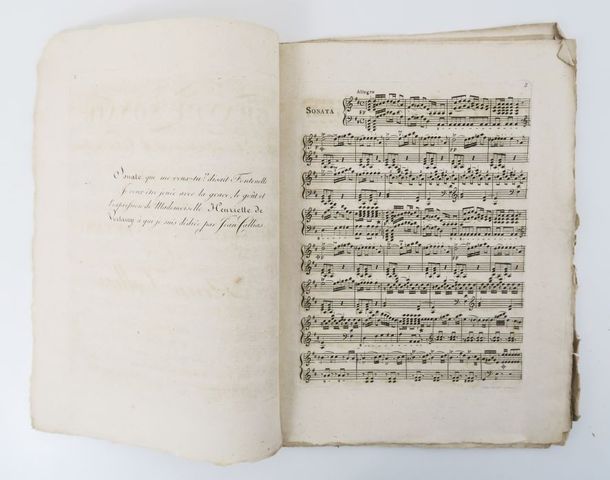 Sonate que me veux-tu? disait Fontenelle
d'être jouée avec la grace, le goût et
l'expression de Mademoiselle Henriette de
à qui je suis dédiée par Jean
2
Allegro
SONATA